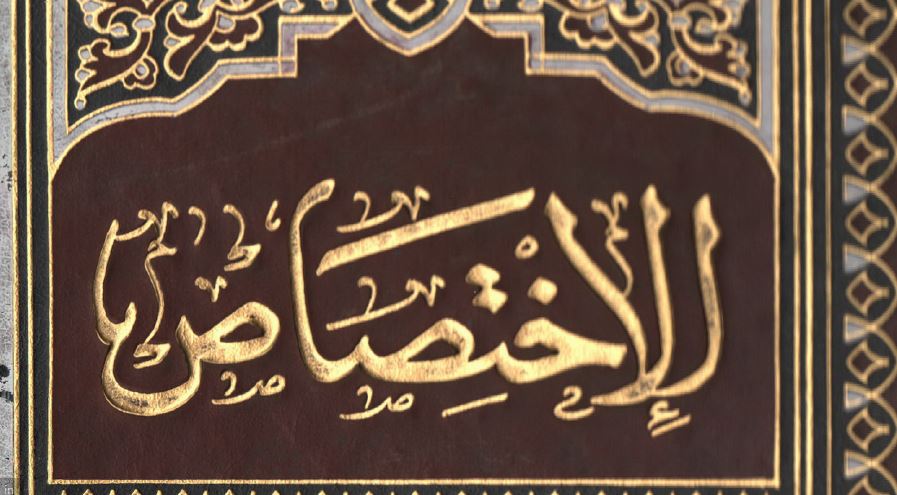 الإِخْتِصَاص